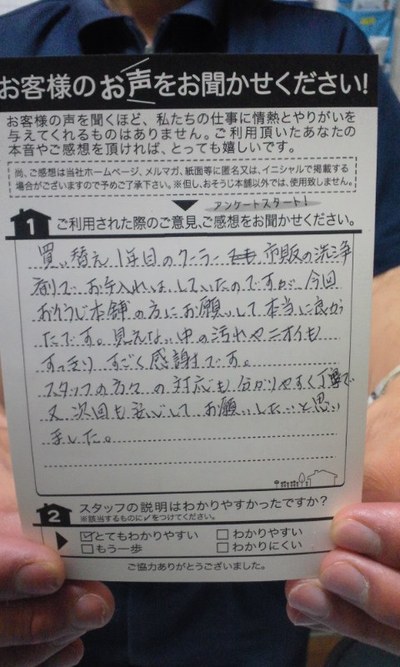 お客様のお声をお聞かせください!
お客様の声を聞くほど、私たちの仕事に情熱とやりがいを
与えてくれるものはありません。ご利用頂いたあなたの
本音やご感想を頂ければ、とっても嬉しいです。
尚、ご感想は当社ホームページ、メルマガ、紙面等に匿名又は、イニシャルで掲載する
場合がございますので予めご了承下さい。※但し、おそうじ本舗以外では、使用致しません。
アンケートスタート!
1 ご利用された際のご意見、ご感想をお聞かせください。
買い替え1年目のクーラー 市販の洗浄
剤でお手入れは、していたのですが、今回
おそうじ本舗の方にお願いして本当に良か
たです。見えない中の汚れやニオイも
すっきり すごく感謝です。
スタッフの方々の対応も分かりやすく丁寧で
又、次回も安心して、お願いしたいと思い
ました。
2 スタッフの説明はわかりやすかったですか?
※該当するものに✓をつけてください。
☑とてもわかりやすい □わかりやすい
□もう一歩 □わかりにくい
ご協力ありがとうございました。